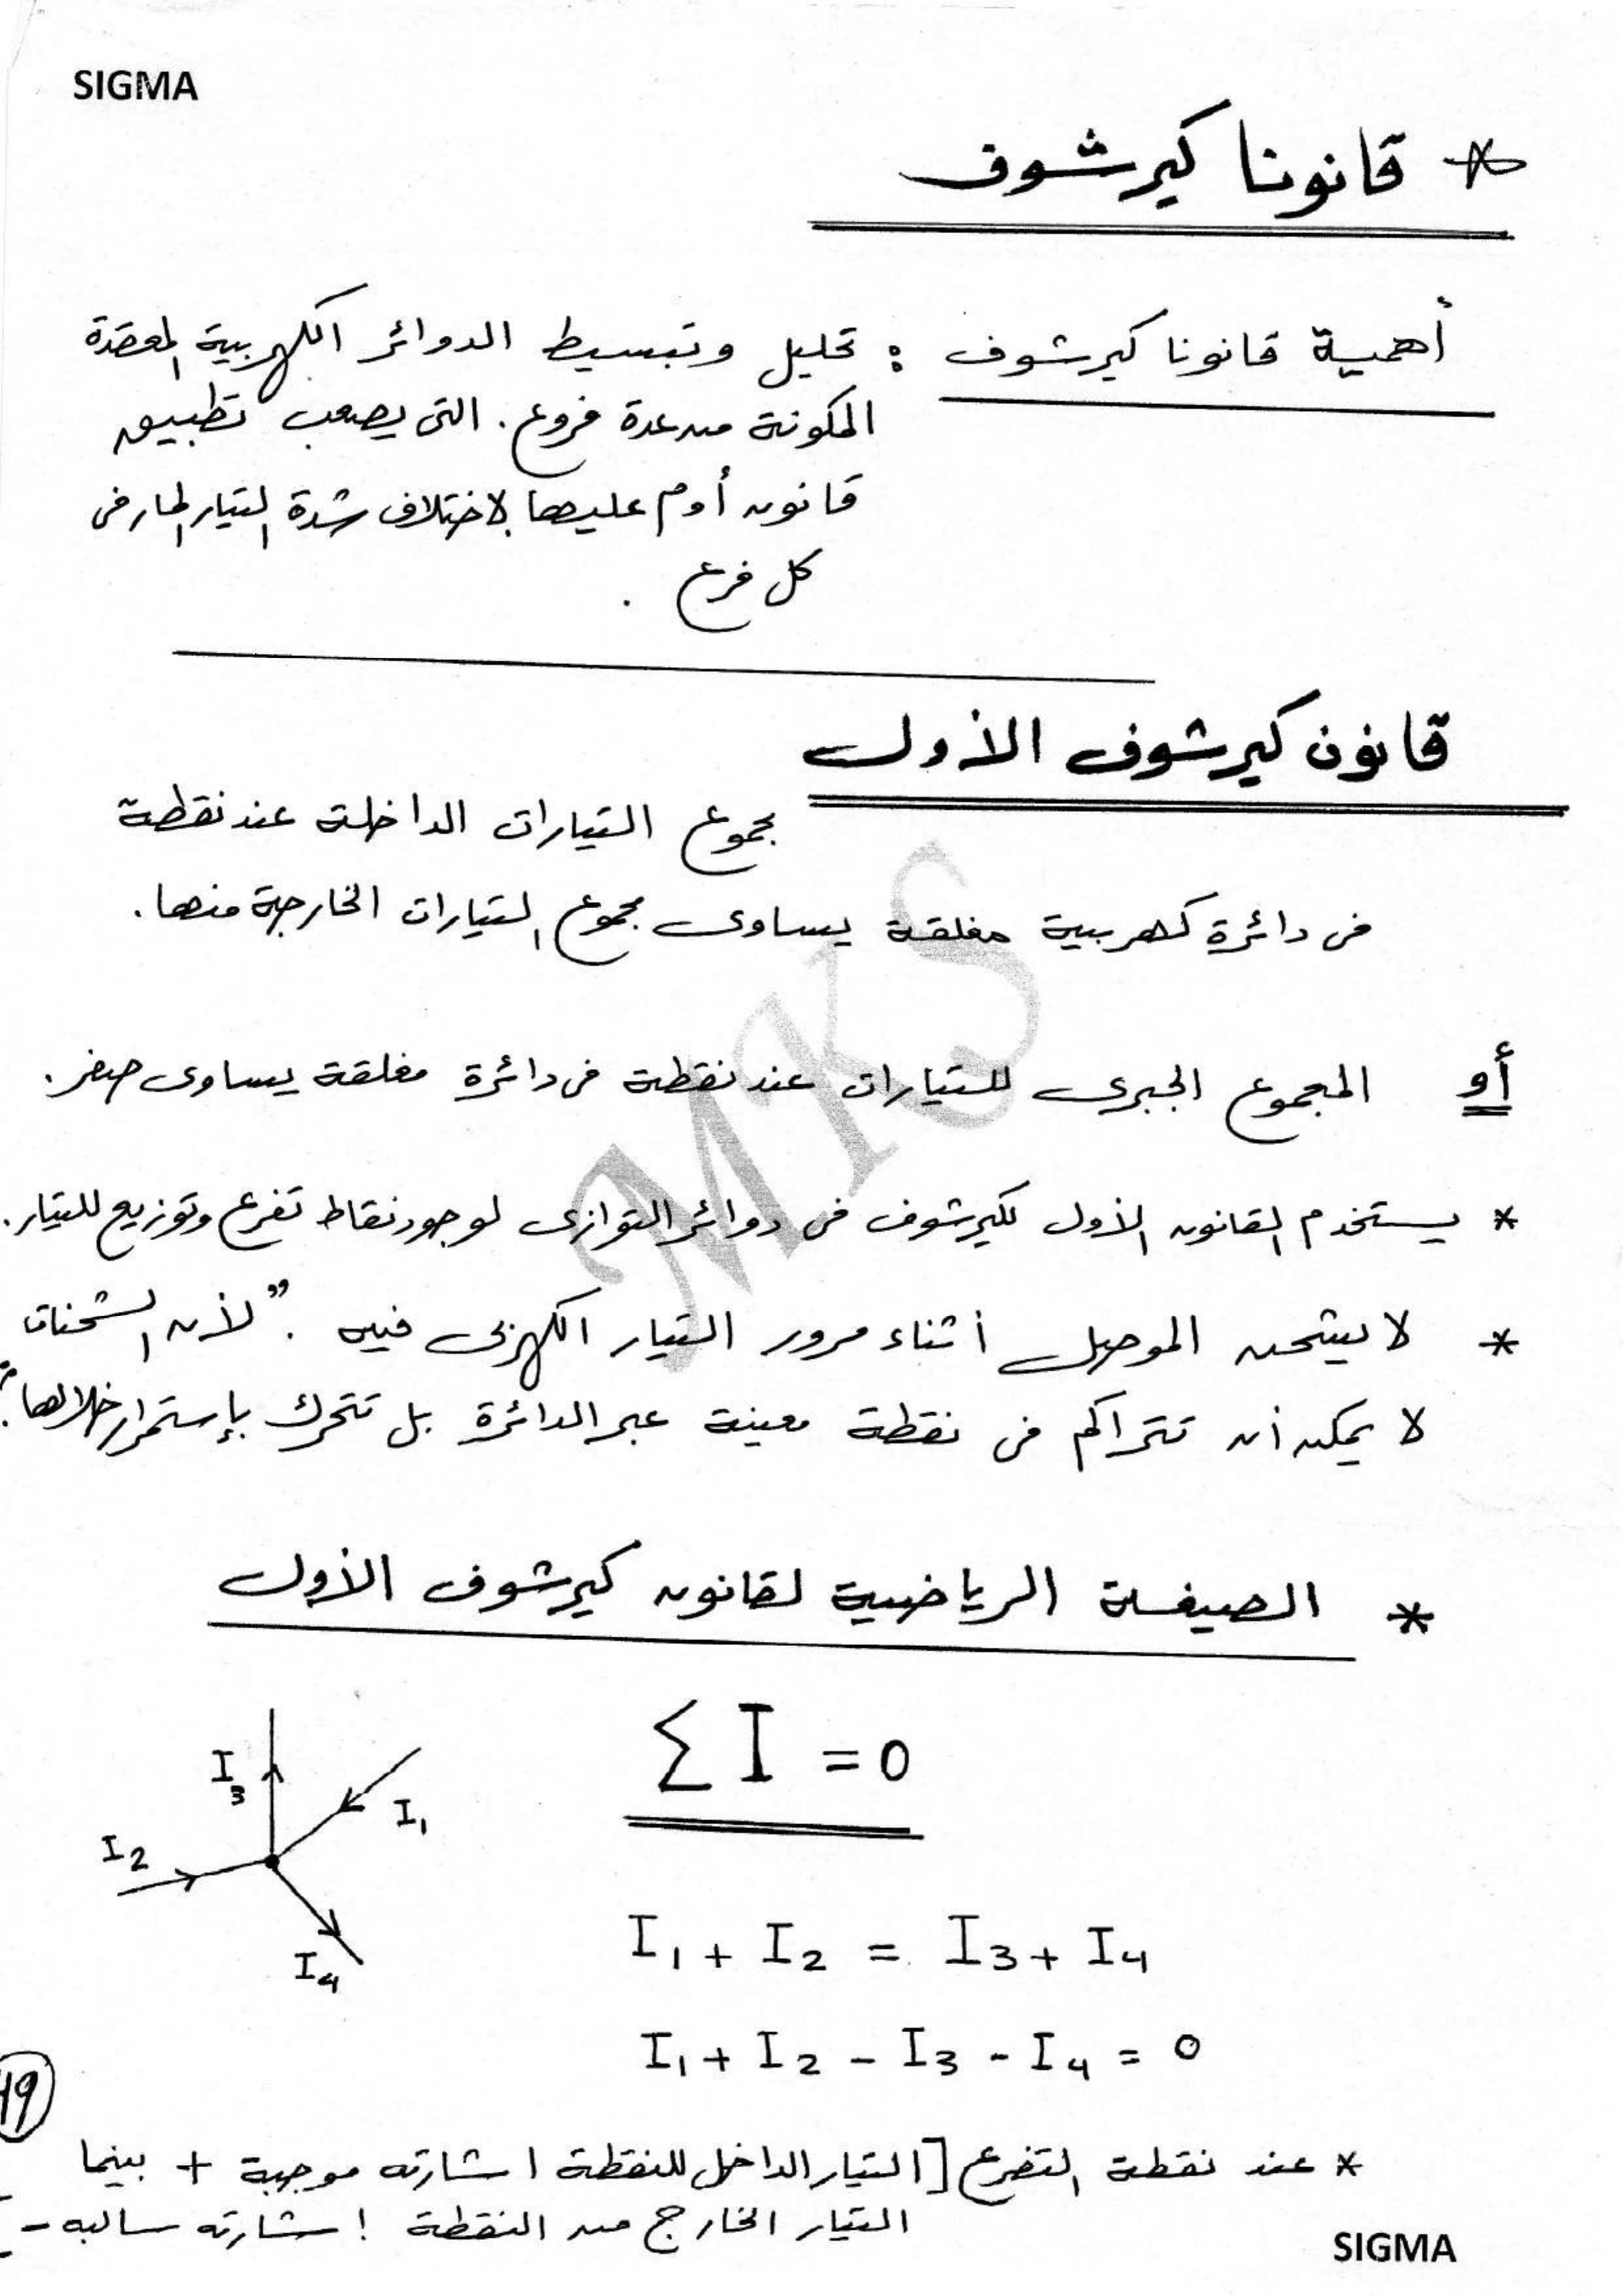 SIGMA
* قانونا كيرشوف
أهمية قانونا كيرشوف : تحليل وتبسيط الدوائر الكهربية المعقدة
المكونة من عدة فروع. التى يصعب تطبيق
قانون أوم عليها لاختلاف شدة التيار المار فى
كل فرع .
قانون كيرشوف الأول
مجموع التيارات الداخلة عند نقطة
فى دائرة كهربية مغلقة يساوى مجموع التيارات الخارجة منها.
أو المجموع الجبرى للتيارات عند نقطة فى دائرة مغلقة يساوى صفر.
MKS
* يستخدم القانون الأول لكيرشوف فى دوائر التوازى لوجود نقاط تفرع وتوزيع للتيار.
* لا يشحن الموصل أثناء مرور التيار الكهربى فيه . "لأن الشحنات
لا يمكن أن تتراكم فى نقطة معينة عبر الدائرة بل تتحرك بإستمرار خلالها."
* الصيغة الرياضية لقانون كيرشوف الأول
Σ I = 0
I3
I1
I2
I4
I1 + I2 = I3 + I4
I1 + I2 - I3 - I4 = 0
* عند نقطة التفرع [التيار الداخل للنقطة اشارته موجبة + بينما
التيار الخارج من النقطة إشارته سالبه -]
19
SIGMA